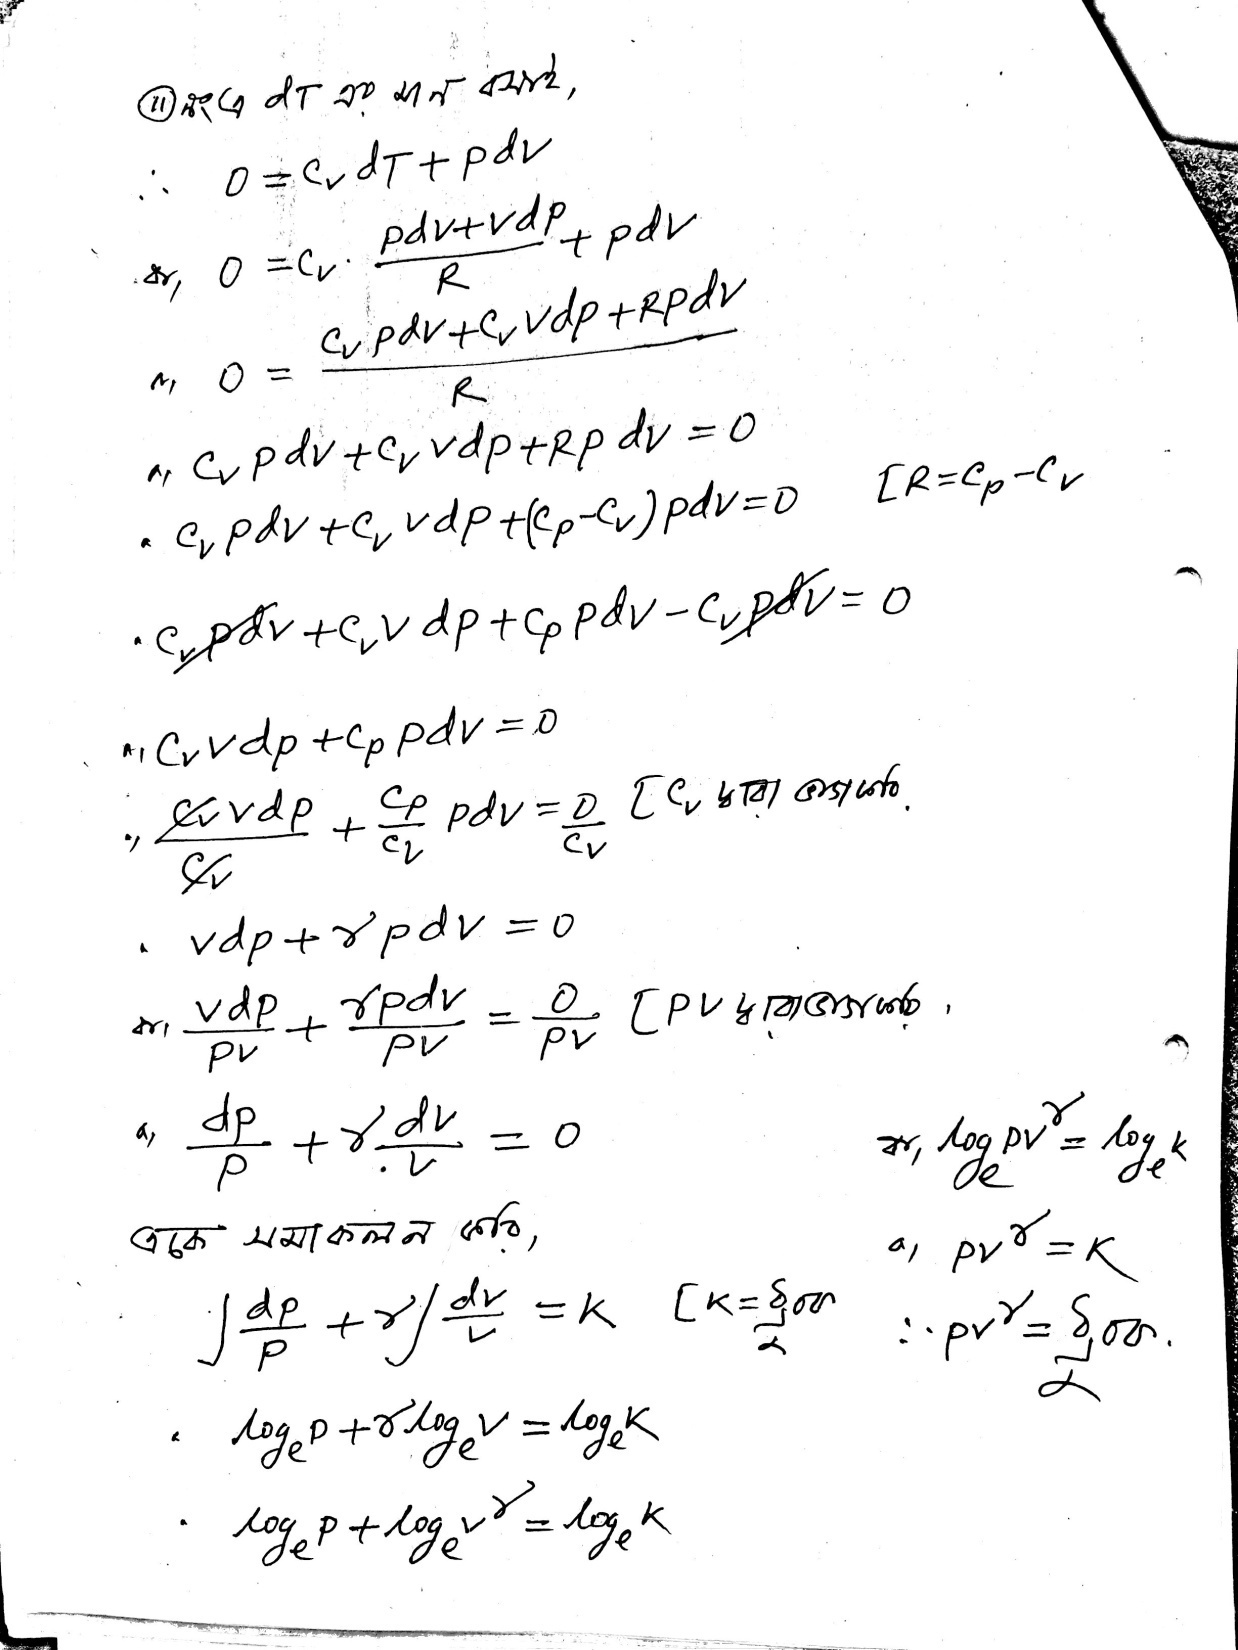 (ii) নং এ dT এর মান বসাই,
∴ 0 = Cv dT + pdv
বা, 0 = Cv · (pdv + vdp)/R + pdv
বা, 0 = (Cv pdv + Cv vdp + Rpdv)/R
বা, Cv pdv + Cv vdp + Rp dv = 0
" Cv pdv + Cv vdp + (Cp - Cv) pdv = 0 [R = Cp - Cv
" Cv pdv + Cv v dp + Cp pdv - Cv pdv = 0
বা, Cv vdp + Cp pdv = 0
", Cv vdp/Cv + Cp/Cv pdv = 0/Cv [Cv দ্বারা ভাগ করি.
" vdp + γ pdv = 0
বা, vdp/pv + γpdv/pv = 0/pv [pv দ্বারা ভাগ করি,
বা, dp/p + γ dv/v = 0
একে সমাকলন করি,
∫ dp/p + γ ∫ dv/v = K [K = ধ্রুবক
" logₑ p + γ logₑ v = logₑ K
" logₑ p + logₑ v^γ = logₑ K
বা, logₑ pv^γ = logₑ K
বা, pv^γ = K
∴ pv^γ = ধ্রুবক.